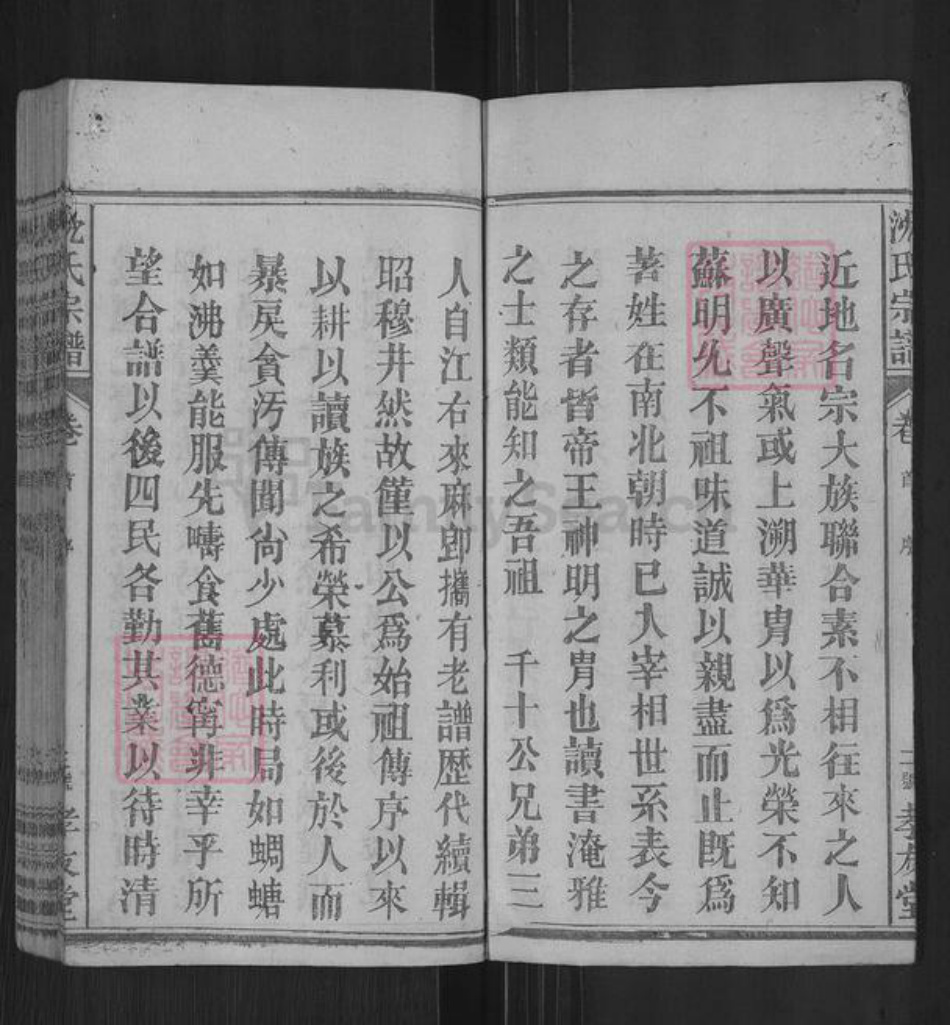 沈氏宗譜
卷
首
序
近地名宗大族聯合素不相往來之人
以廣聲氣或上溯華胄以爲光榮不知
蘇明允不祖味道誠以親盡而止旣爲
著姓在南北朝時已人宰相世系表今
之存者皆帝王神明之胄也讀書淹雅
之士類能知之吾祖 千十公兄弟三
人自江右來麻卽攜有老譜歷代續輯
昭穆井然故僅以公爲始祖傳序以來
以耕以讀族之希榮慕利或後於人而
暴戾貪污傳聞尙少處此時局如蜩螗
如沸羹能服先疇食舊德寗非幸乎所
望合譜以後四民各勤其業以待時清
沈氏宗譜
卷
首
序
孝友堂
FamilySearch